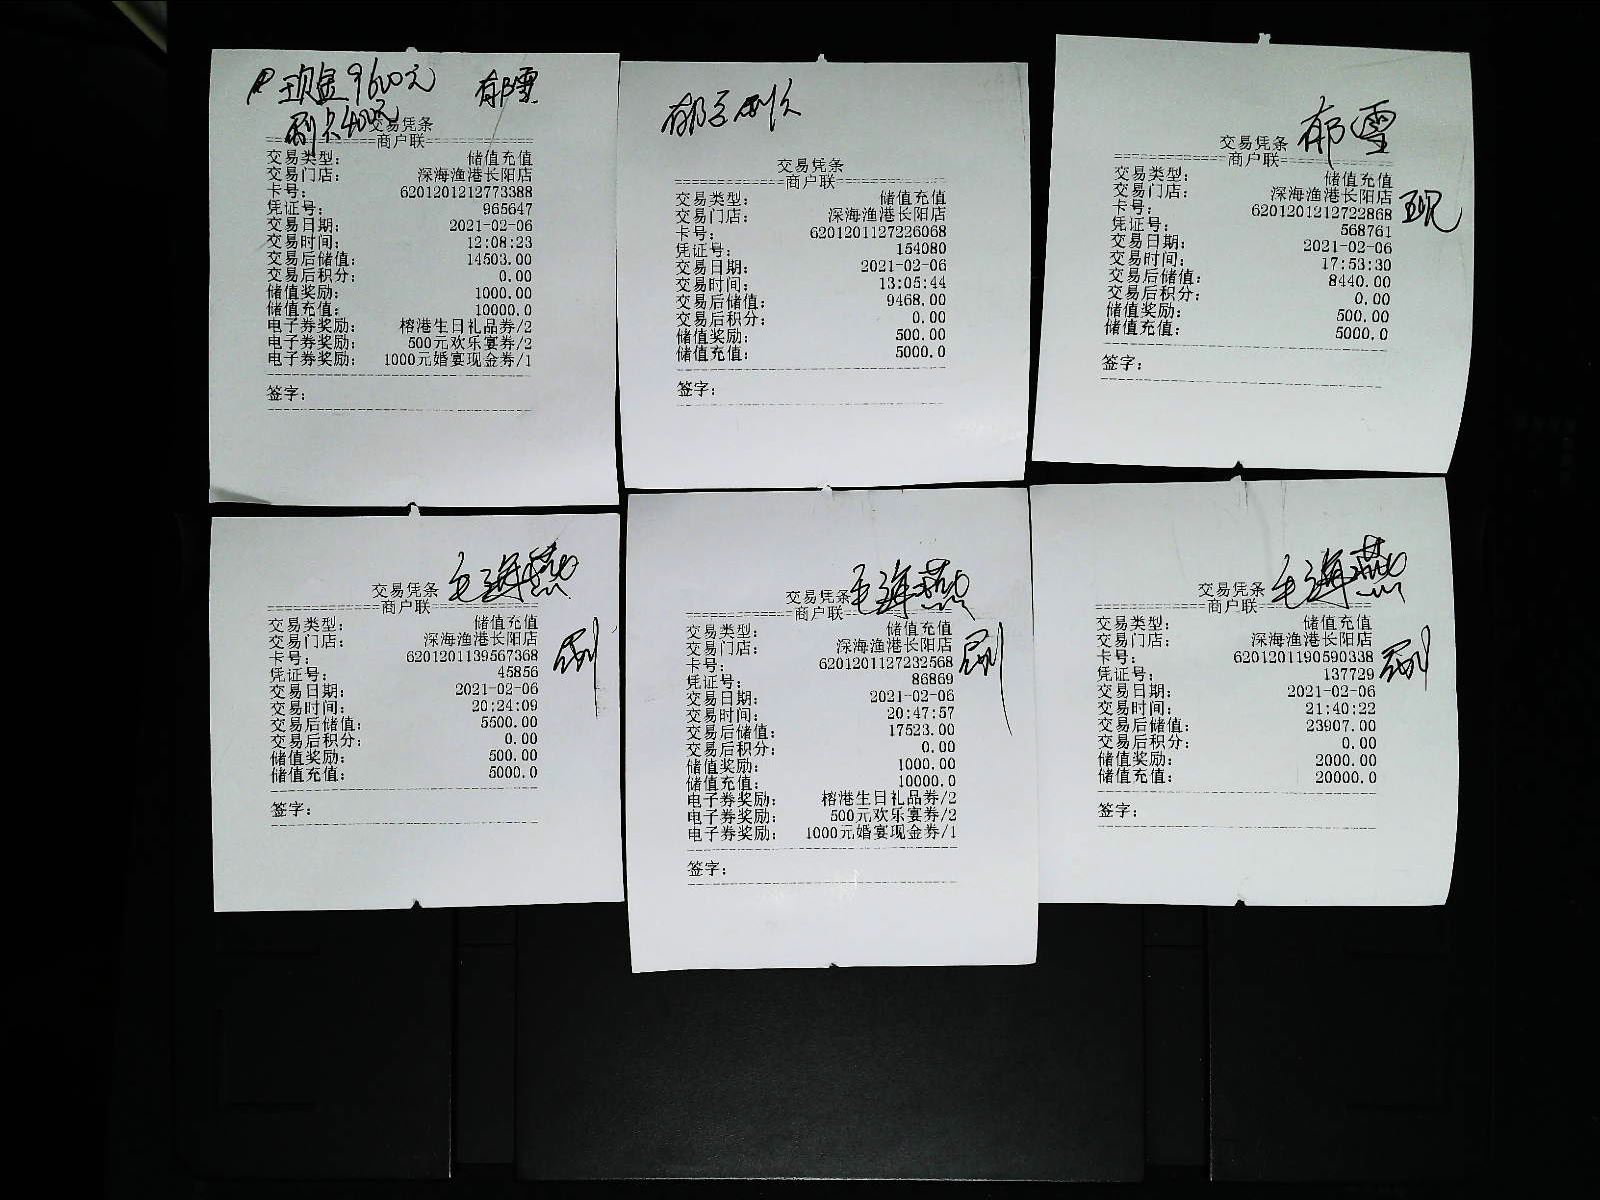 现金9600元 郁雪
刷卡400元
交易凭条
商户联
交易类型: 储值充值
交易门店: 深海渔港长阳店
卡号: 6201201212773388
凭证号: 965647
交易日期: 2021-02-06
交易时间: 12:08:23
交易后储值: 14503.00
交易后积分: 0.00
储值奖励: 1000.00
储值充值: 10000.0
电子券奖励: 榕港生日礼品券/2
电子券奖励: 500元欢乐宴券/2
电子券奖励: 1000元婚宴现金券/1
签字:
交易凭条
商户联
交易类型: 储值充值
交易门店: 深海渔港长阳店
卡号: 6201201127226068
凭证号: 154080
交易日期: 2021-02-06
交易时间: 13:05:44
交易后储值: 9468.00
交易后积分: 0.00
储值奖励: 500.00
储值充值: 5000.0
签字:
郁雪
交易凭条
商户联
交易类型: 储值充值
交易门店: 深海渔港长阳店
卡号: 6201201212722868
现
凭证号: 568761
交易日期: 2021-02-06
交易时间: 17:53:30
交易后储值: 8440.00
交易后积分: 0.00
储值奖励: 500.00
储值充值: 5000.0
签字:
毛海燕
交易凭条
商户联
交易类型: 储值充值
交易门店: 深海渔港长阳店
卡号: 6201201139567368
刷
凭证号: 45856
交易日期: 2021-02-06
交易时间: 20:24:09
交易后储值: 5500.00
交易后积分: 0.00
储值奖励: 500.00
储值充值: 5000.0
签字:
毛海燕
交易凭条
商户联
交易类型: 储值充值
交易门店: 深海渔港长阳店
卡号: 6201201127232568
刷
凭证号: 86869
交易日期: 2021-02-06
交易时间: 20:47:57
交易后储值: 17523.00
交易后积分: 0.00
储值奖励: 1000.00
储值充值: 10000.0
电子券奖励: 榕港生日礼品券/2
电子券奖励: 500元欢乐宴券/2
电子券奖励: 1000元婚宴现金券/1
签字:
毛海燕
交易凭条
商户联
交易类型: 储值充值
交易门店: 深海渔港长阳店
卡号: 6201201190590338
刷
凭证号: 137729
交易日期: 2021-02-06
交易时间: 21:40:22
交易后储值: 23907.00
交易后积分: 0.00
储值奖励: 2000.00
储值充值: 20000.0
签字: